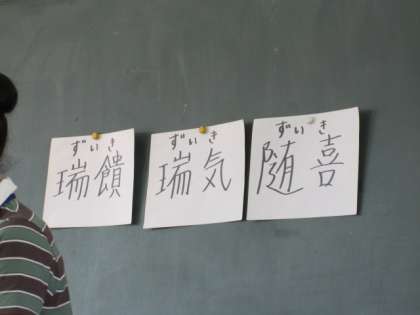 ずいき
瑞饋
ずいき
瑞気
ずいき
随喜